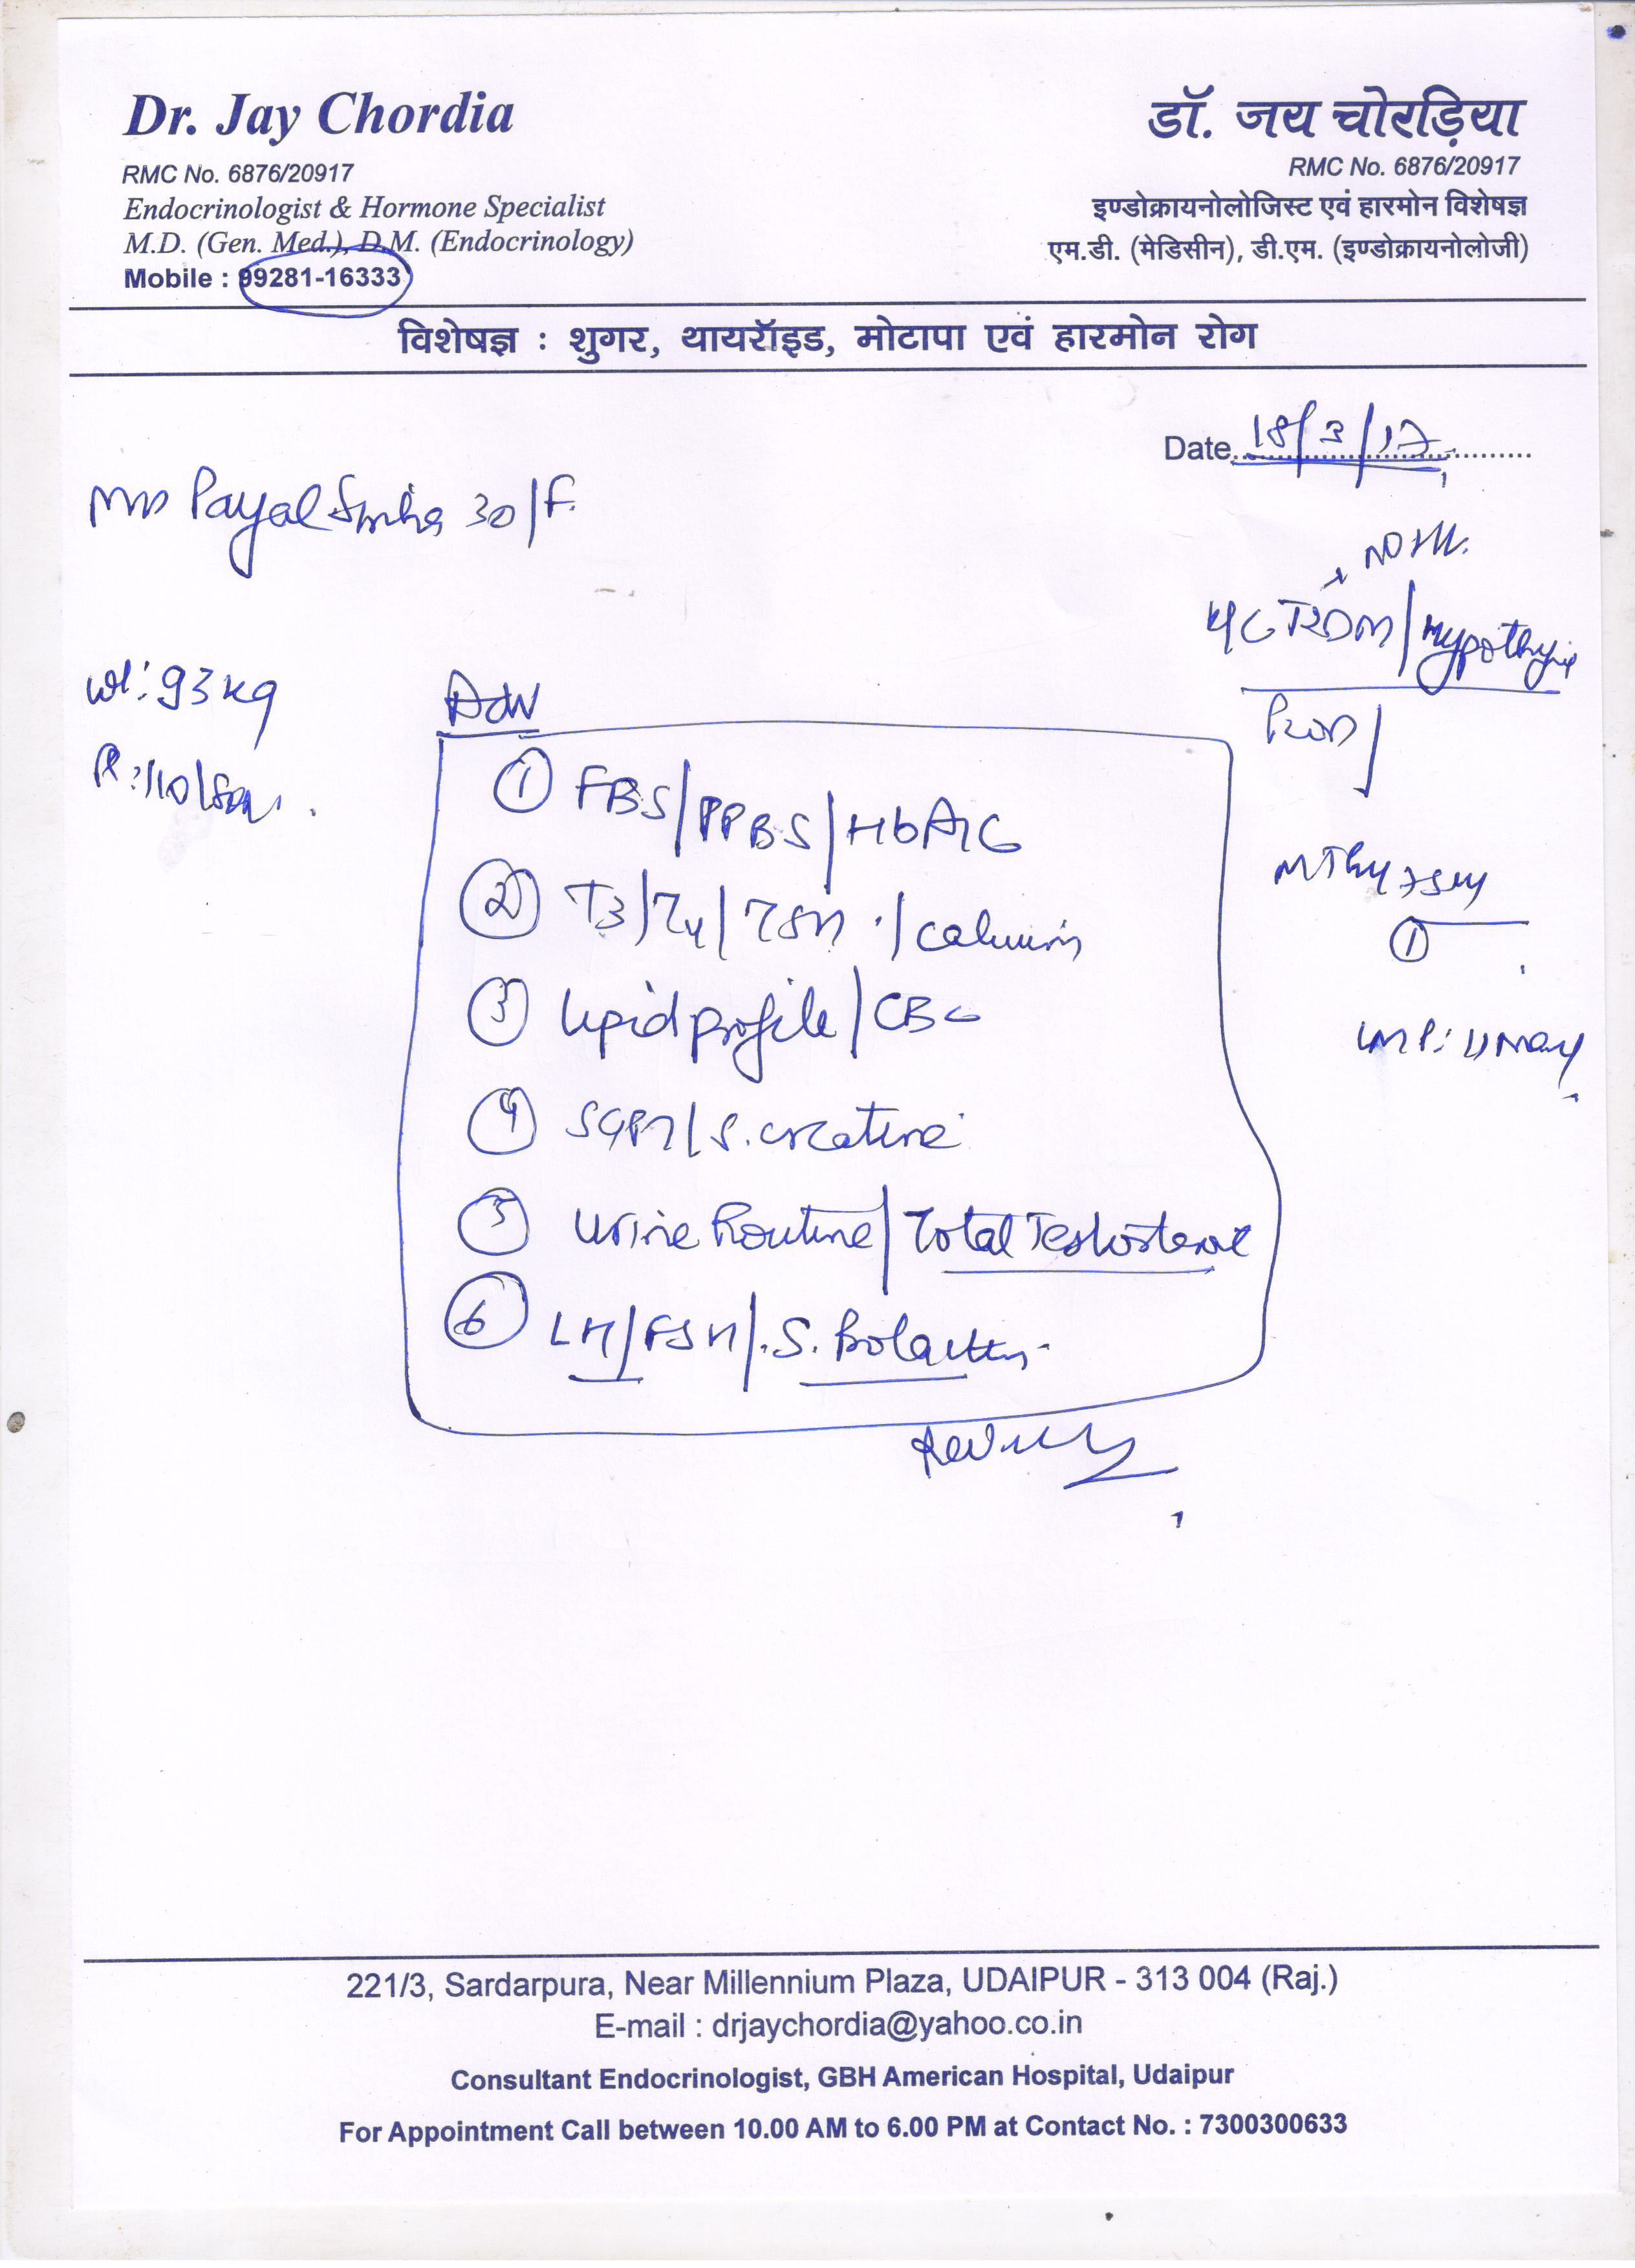 Dr. Jay Chordia
RMC No. 6876/20917
Endocrinologist & Hormone Specialist
M.D. (Gen. Med.), D.M. (Endocrinology)
Mobile : 99281-16333
डॉ. जय चोरड़िया
RMC No. 6876/20917
इण्डोक्रायनोलोजिस्ट एवं हारमोन विशेषज्ञ
एम.डी. (मेडिसीन), डी.एम. (इण्डोक्रायनोलोजी)
विशेषज्ञ : शुगर, थायरॉइड, मोटापा एवं हारमोन रोग
Date 18/3/17
Payal 30/F.
wt: 93 kg
T2DM/
Adv
① FBS/PPBS/HbA1C
② T3/T4/TSH /
③ Lipid profile/CBC
④ SGPT/S.
⑤ Urine Routine/Total Testosterone
⑥ LH/FSH/.S.
①
LMP:
221/3, Sardarpura, Near Millennium Plaza, UDAIPUR - 313 004 (Raj.)
E-mail : drjaychordia@yahoo.co.in
Consultant Endocrinologist, GBH American Hospital, Udaipur
For Appointment Call between 10.00 AM to 6.00 PM at Contact No. : 7300300633